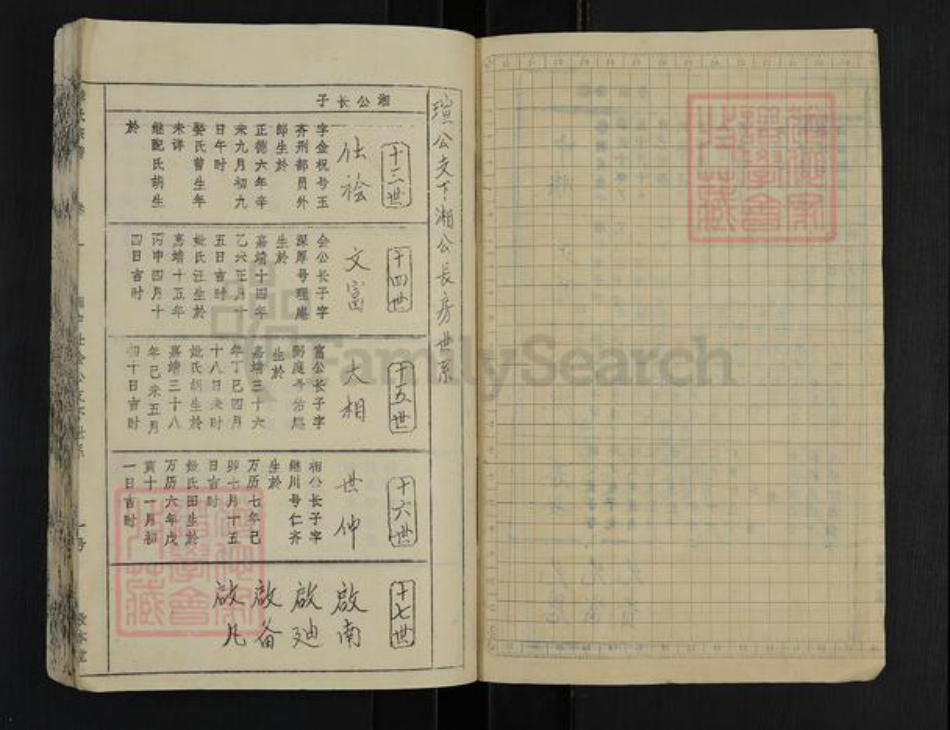 瑄公支下湘公長房世系
湘公长子
十三世
仕袷
字金祝号玉
齐刑部员外
郎生於
正德六年辛
未九月初九
日午时
娶氏曾生年
未详
继配氏胡生
於
十四世
文富
公长子字
深厚号理庵
生於
嘉靖十四年
乙未正月十
五日吉时
妣氏汪生於
嘉靖十五年
丙申四月十
四日吉时
十五世
大相
富公长子字
生於
嘉靖三十六
年丁巳四月
十八日未时
妣氏胡生於
嘉靖三十八
年己未五月
初十日吉时
十六世
世仲
相公长子字
继川号仁齐
生於
万历七年己
卯七月十五
日吉时
妣氏田生於
万历六年戊
寅十一月初
一日吉时
十七世
啟南
啟廸
啟备
啟凡
FamilySearch